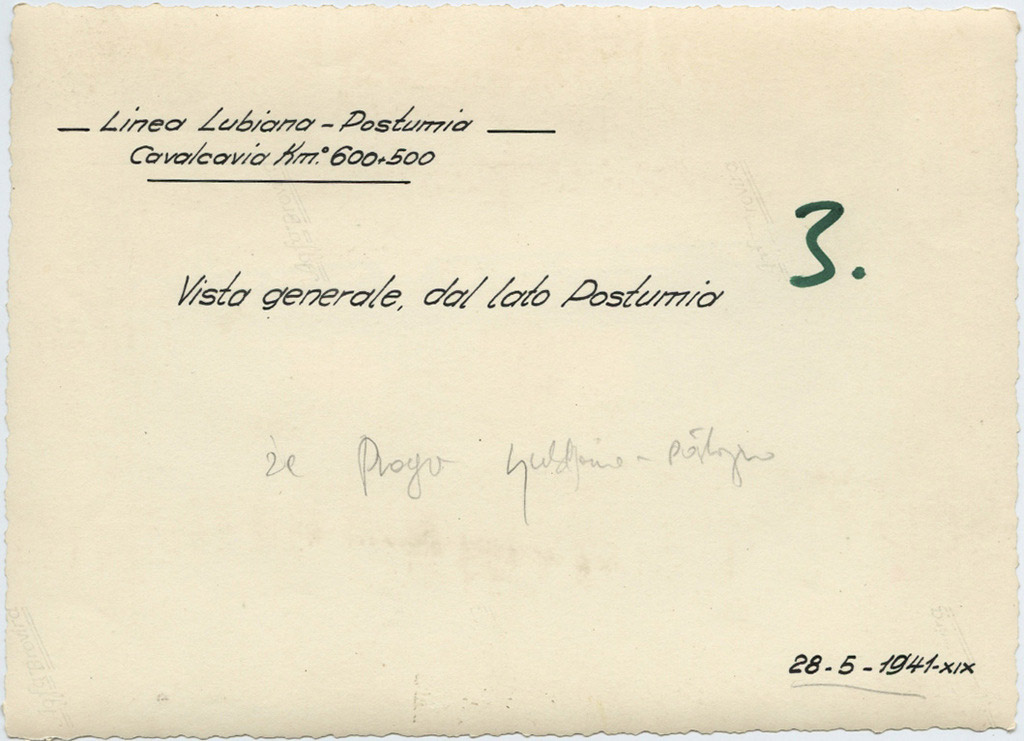 Linea Lubiana - Postumia
Cavalcavia Km.° 600+500
3.
Vista generale, dal lato Postumia
že Proga Ljubljana - Postojna
28-5-1941-XIX